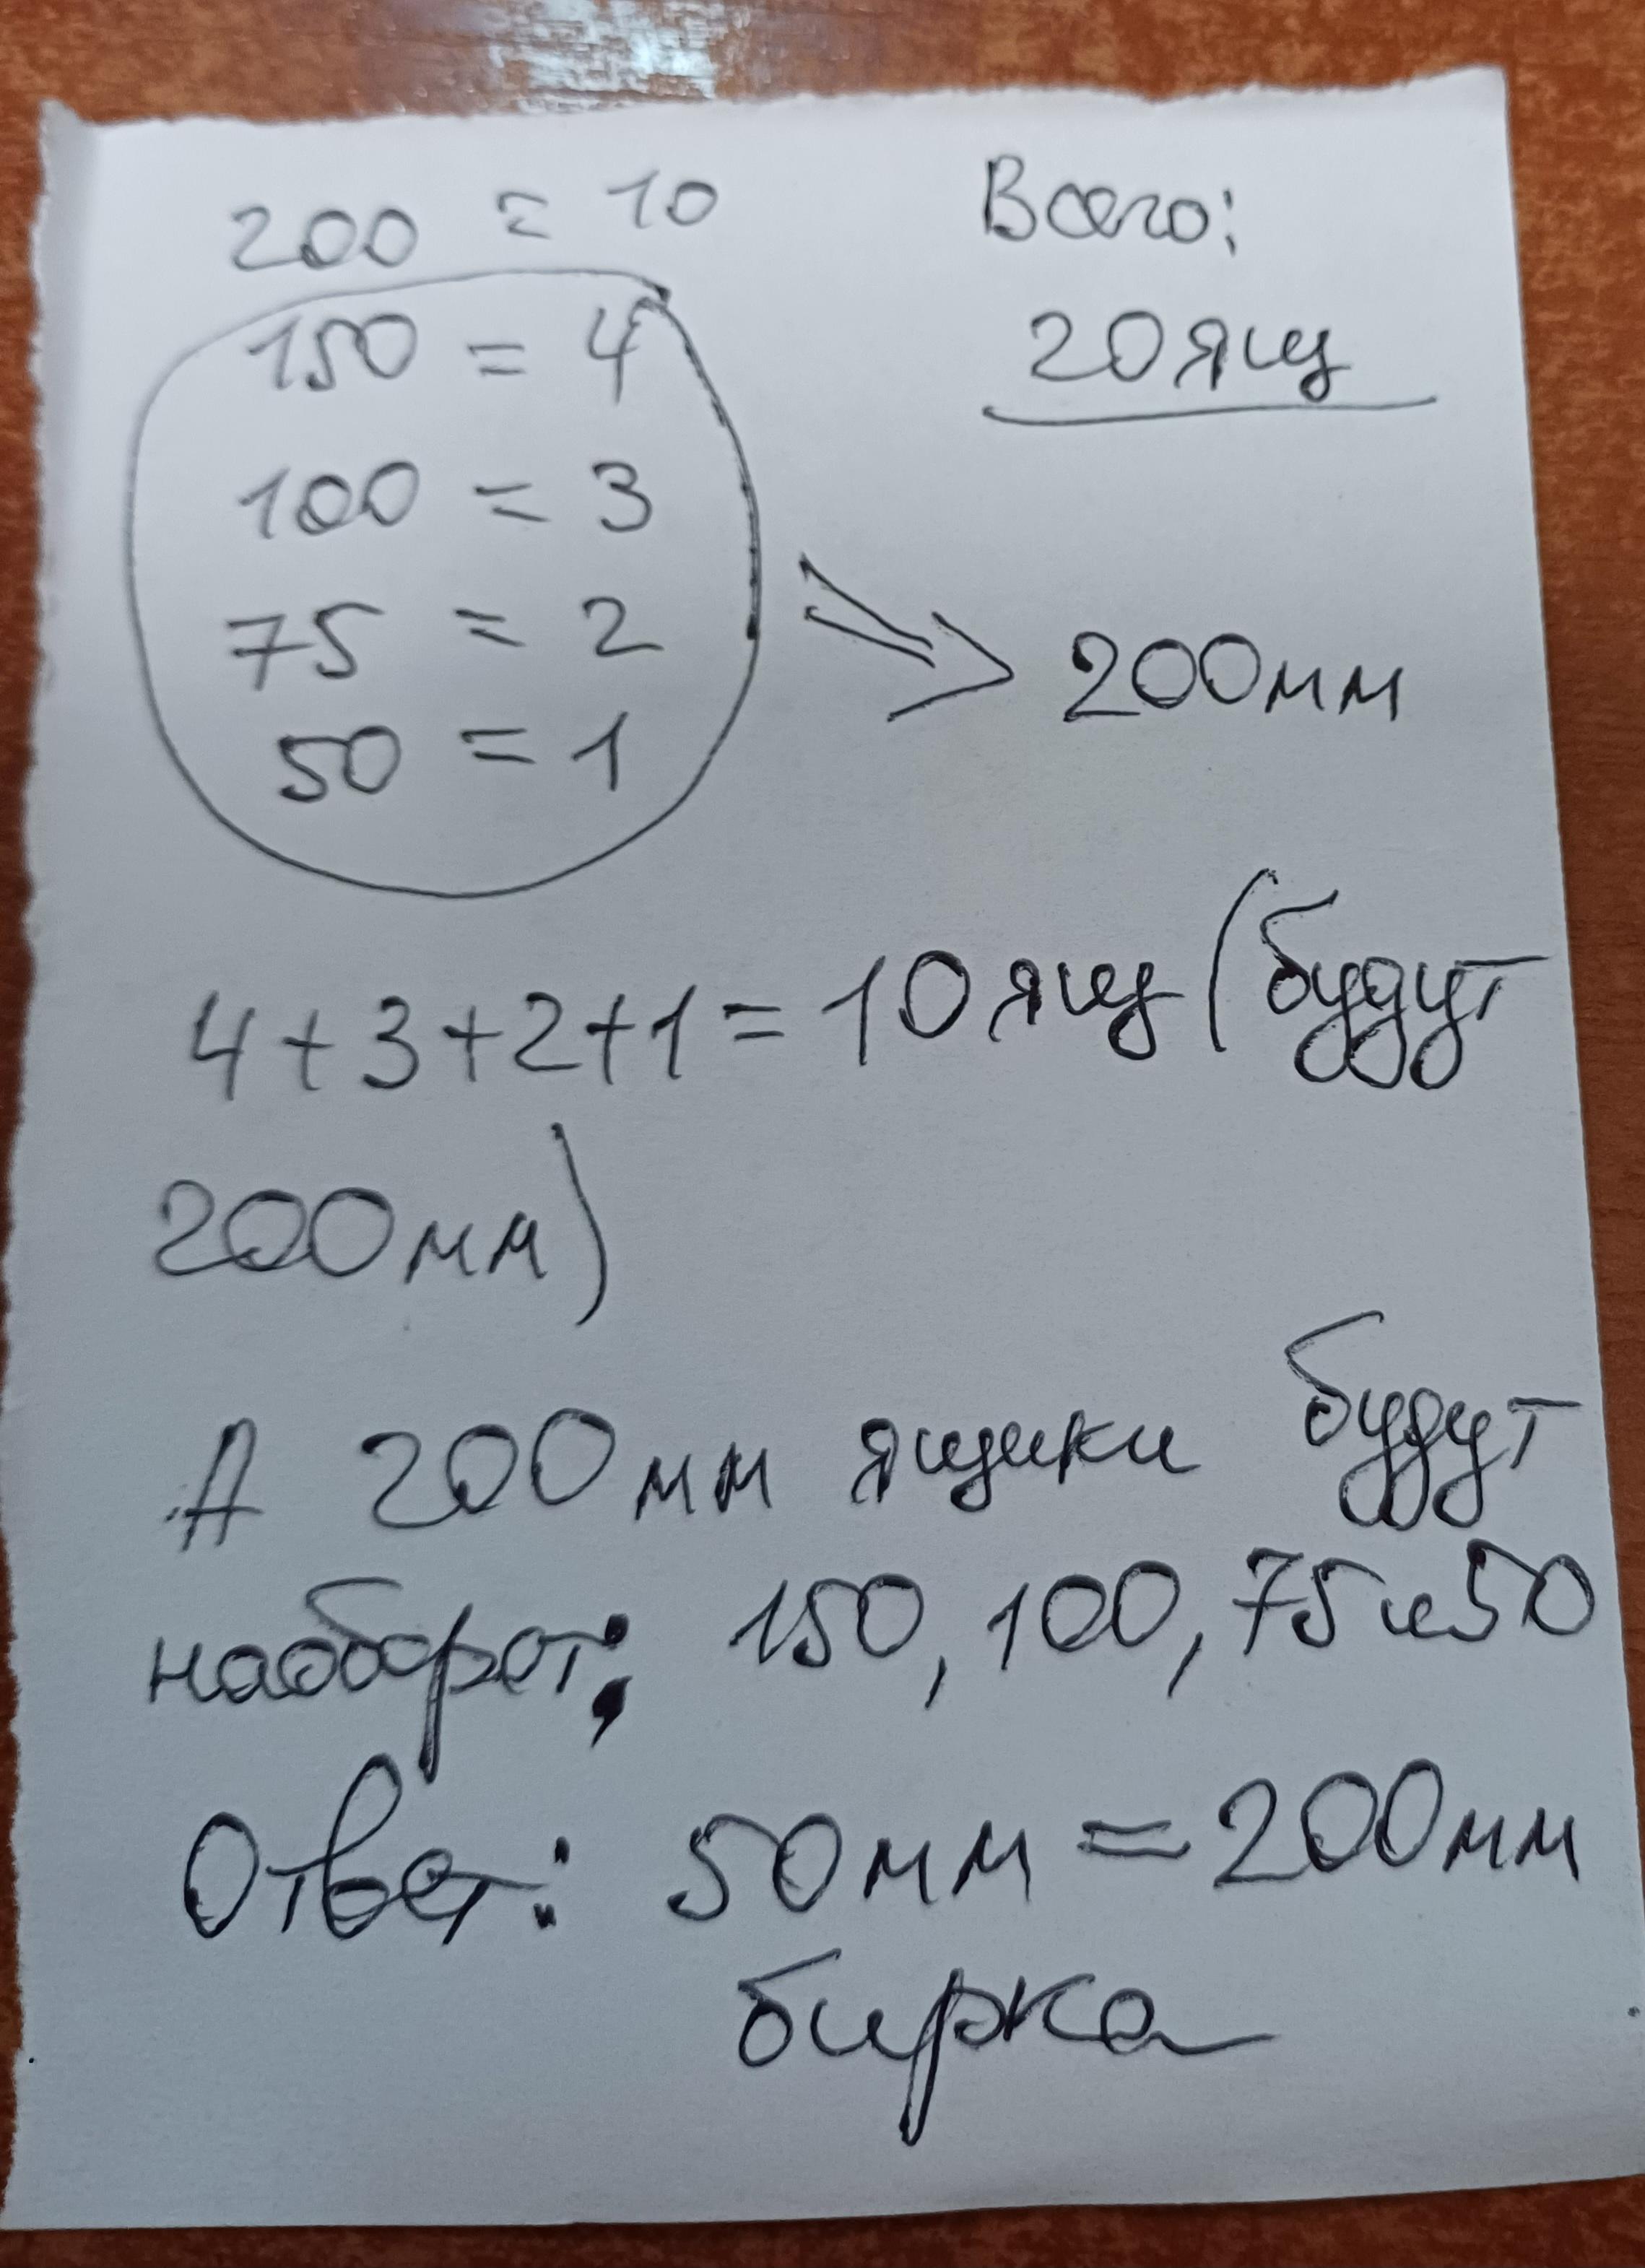 200 = 10
Всего:
20 ящ
150 = 4
100 = 3
75 = 2
50 = 1
200мм
4+3+2+1=10 ящ (будут
200мм)
А 200мм ящики будут
наоборот; 150, 100, 75 и 50
Ответ: 50мм = 200мм
бирка